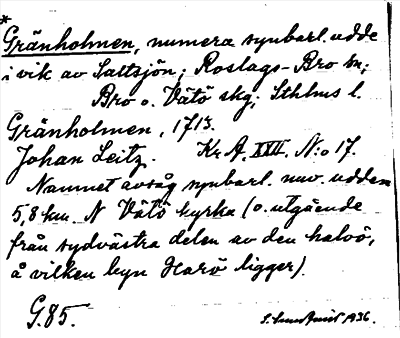 *
Gränholmen, numera synbarl. udde
i vik av Saltsjön; Roslags-Bro sn;
Bro o. Vätö skg; Sthlms l.
Gränholmen, 1713.
Johan Leitz. Kr A. XVII. N:o 17.
Namnet avsåg synbarl. nuv. udden
5,8 km. N Vätö kyrka (o. utgående
från sydvästra delen av den halvö,
å vilken byn Harö ligger).
G.85. 1936.